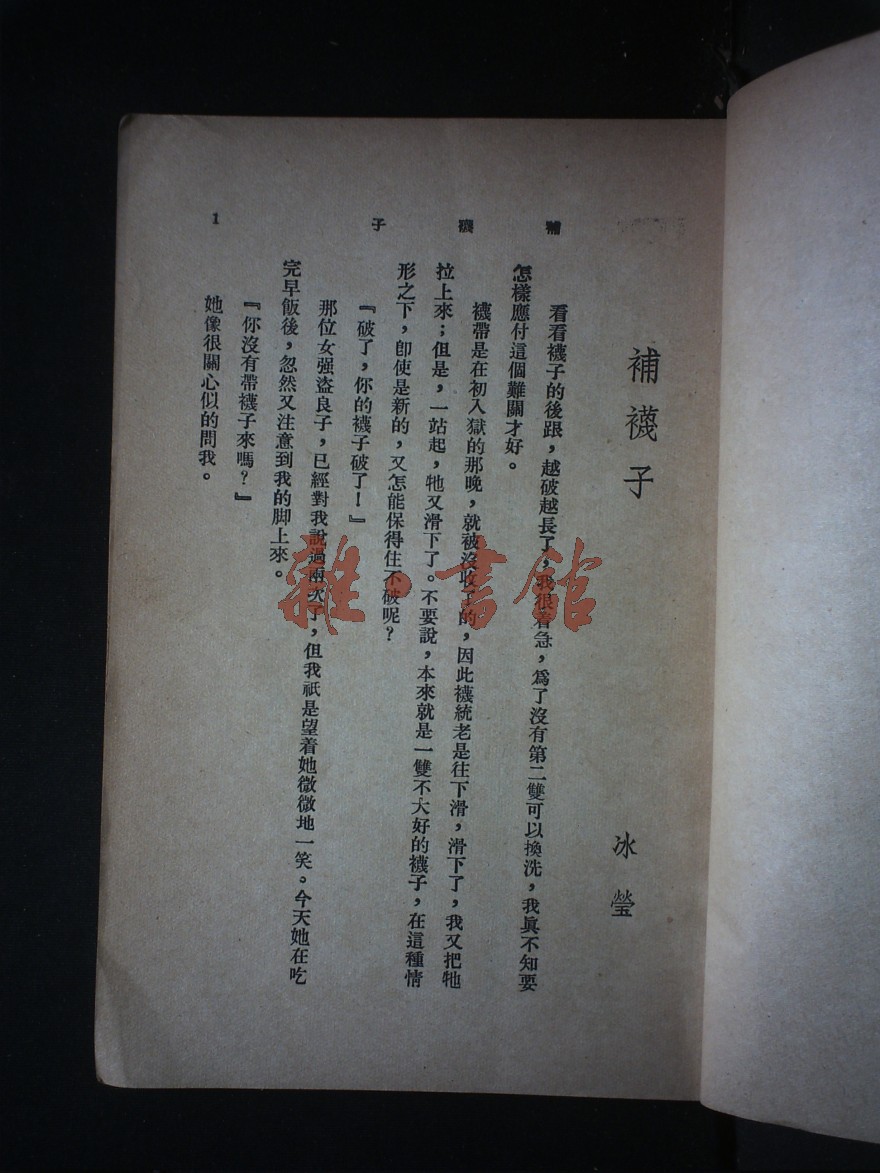 補襪子
冰瑩
看看襪子的後跟，越破越長了，我很着急，爲了沒有第二雙可以換洗，我眞不知要
怎樣應付這個難關才好。
襪帶是在初入獄的那晚，就被沒收了的，因此襪統老是往下滑，滑下了，我又把牠
拉上來；但是，一站起，牠又滑下了。不要說，本來就是一雙不大好的襪子，在這種情
形之下，卽使是新的，又怎能保得住不破呢？
『破了，你的襪子破了！』
那位女强盜良子，已經對我說過兩次了，但我祇是望着她微微地一笑。今天她在吃
完早飯後，忽然又注意到我的脚上來。
『你沒有帶襪子來嗎？』
她像很關心似的問我。
補襪子
1
雜·書館